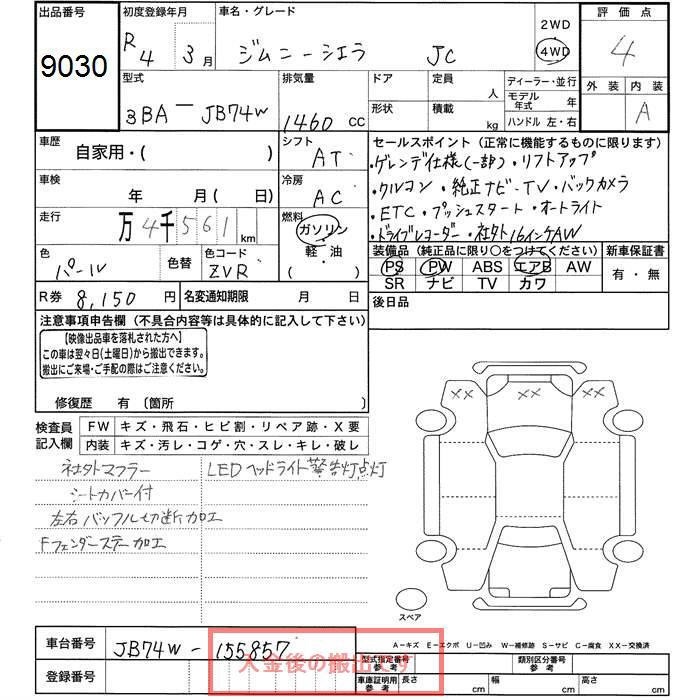 出品番号 初度登録年月 車名・グレード 2WD 評価点
9030 R4 3月 ジムニーシエラ JC 4WD 4
型式 排気量 ドア 定員 人 ディーラー・並行 外装 内装
3BA-JB74W 1460cc 形状 積載 kg モデル年式 年 A
ハンドル 左・右
車歴 自家用・( ) シフト AT
セールスポイント(正常に機能するものに限ります)
・ゲレンデ仕様(一部)・リフトアップ
車検 年 月(日) 冷房 AC
・クルコン・純正ナビ-TV・バックカメラ
・ETC・プッシュスタート・オートライト
走行 万4千561km 燃料 ガソリン・軽・油 ( )
・ドライブレコーダー・社外16インチAW
装備品(純正品に限り○をつけてください) 新車保証書
色 パール 色替 色コード ZVR
PS PW ABS エアB AW 有・無
SR ナビ TV カワ
R券 8,150円 名変通知期限 月 日 後日品
注意事項申告欄(不具合内容等は具体的に記入して下さい)
【映像出品車を落札された方へ】
この車は翌々日(土曜日)から搬出できます。
搬出にご来場・ご手配の際はご注意ください。
修復歴 有〔箇所 〕
XX XX XX
検査員記入欄 FW キズ・飛石・ヒビ割・リペア跡・X要
内装 キズ・汚レ・コゲ・穴・スレ・キレ・破レ
社外マフラー LEDヘッドライト警告灯点灯
シートカバー付
左右バッフル切断加工
Fフェンダーステー加工
スペア
A-キズ E-エクボ U-凹み W-補修跡 S-サビ C-腐食 XX-交換済
車台番号 JB74W-155857 型式指定番号参考 類別区分番号参考
入金後の搬出です
登録番号 車庫証明用参考 長さ cm 幅 cm 高さ cm